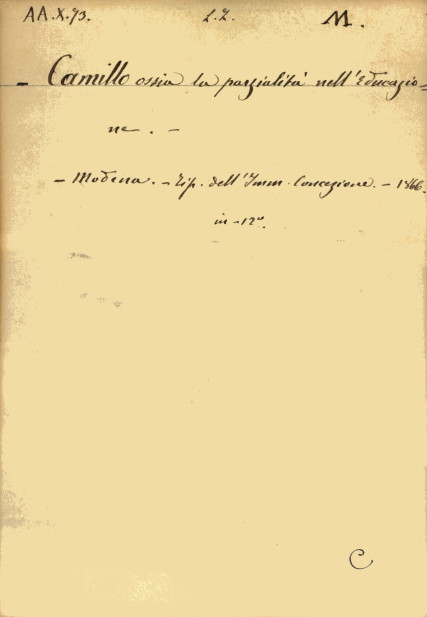 AA.X.73. L.Z. M.
- Camillo ossia la parzialità nell'Educazio=
ne. -
- Modena. - Tip. dell'Imm. Concezione. - 1866.
in - 12º.
C